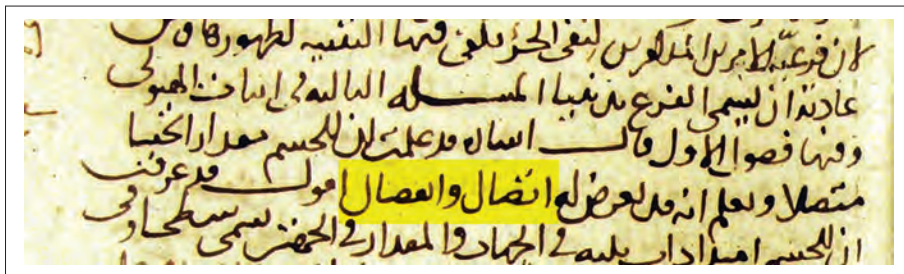 لان فرعية الامرين المذكورين لنفى الجزء يكفى فيها التنبيه لظهورها ومن
عادته ان يسمى الفرع تذنيبا المسله الثالثه فى اثبات الهيولى
وفيها فصول الاول قال اشاره قد علمت ان للجسم مقدارا ثخينا
متصلا وتعلم انه قد يعرض له اتصال وانفصال اقول قد عرفت
ان للجسم امتدادات ثلثه فى الجهات والمقدار فى يسمى سطحا وفى